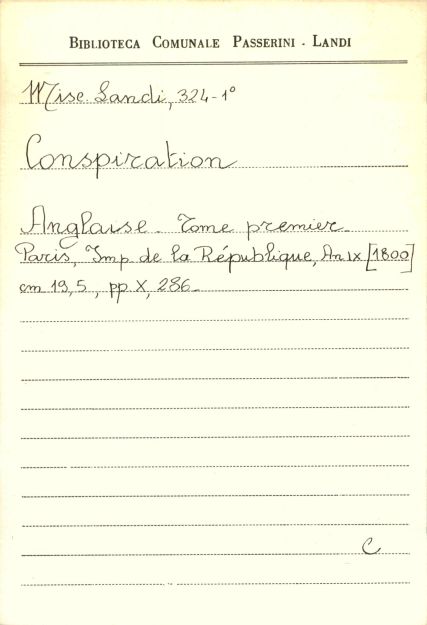 BIBLIOTECA COMUNALE PASSERINI - LANDI
Misc Landi, 324-1°
Conspiration
Anglaise. Tome premier.
Paris, Imp. de la République, An IX [1800]
cm 19,5, pp. X, 286.
C